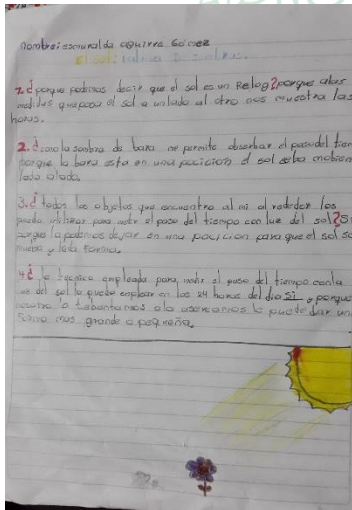 Nombre: esmeralda aguirre Gómez
El sol:
1. ¿porque podimos decir que el sol es un Relog? porque alas
medidas que pasa el sol a unlado al otro nos muestra las
horas.
2. ¿como la sombra de bara me permite obserbar el paso del tiem
porque la bara esta en una pocicion el sol seba mobien
lado alado.
3. ¿todos los objetos que encuentro al mi al rededor los
puedo utilizar para medir el paso del tiempo con luz del sol? Si
porque lo podemos dejar en una pocicion para que el sol se
mueba y leda forma.
4 ¿la tecnica empleada para medir el paso del tiempo conla
luz del sol la puedo emplear en las 24 horas del dia Si, porque
como lo lebantamos olo asercamos le puede dar un
forma mas grande o pequeña.